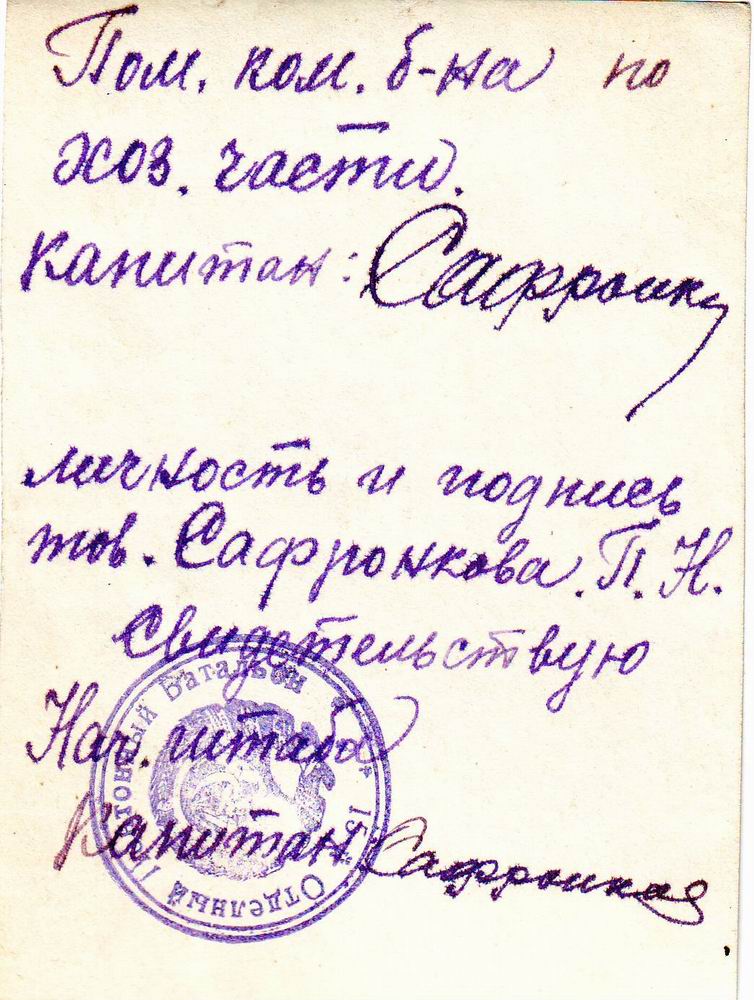 Пом. ком. б-на по
хоз. части.
Капитан: Сафронк
личность и подпись
тов. Сафронкова. П. Н.
Свидетельствую
Нач. штаба
Капитан: Сафронков
Отдельный
Батальон